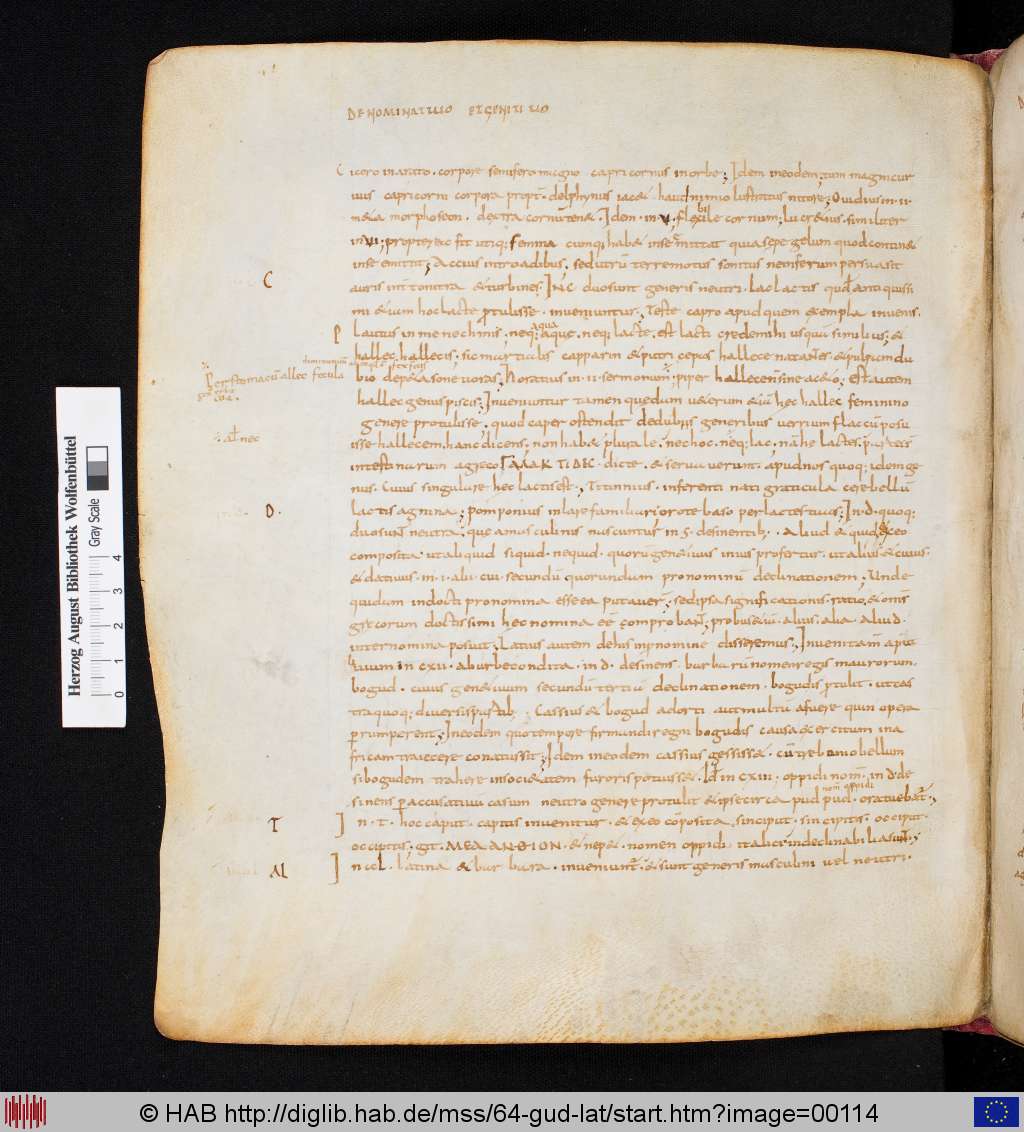 DE NOMINATIUO ET GENITIUO
Cicero in arato. corpore semifero magno capricornus in orbe; Idem in eodem; tum magni cur
uus capricorni corpora propt. delphynus iacet haud nimio lustratus nitore; Ouidius in .ii.
metamorphoseon. dextra cornu tenet. Idem in .V. flexibile cornum; lucretius. similiter
in VI; propterea fit utiq; femina cumq; habet
inse emittit; Accius in troadibus. sed utrum terremotus sonitus
C
auris inter tonitra et turbines; IN C duo sunt generis neutri. lac lactis quod antiquissi
mi etiam hoc lacte protulisse inueniuntur; Teste capro apud quem exempla inuenis.
P
Plautus in menechmis. neq; aquae. neq; lacte. est lacti crede mihi usquam similius; et
hallec hallecis. sic martialis capparin et putri cepas hallece natantes et pulpam du
Per stomacum allec fecula
bio de petasone uoras; Horatius in .ii. sermonum. piper hallecem sine aceto; est autem
hallec genus piscis; Inueniuntur tamen quedam ueterum etiam hec hallec feminino
genere protulisse. quod caper ostendit de dubiis generibus uerrium flaccum posu
al nec
isse hallecem. hanc dicens. non habet plurale. nec hoc. neq; lac, nam he lactes.
intestinorum a greco ΓΑΛΑΚΤΙΔΕC. dicte. et seruauerunt. apud nos quoq; idem ge
nus. Cuius singulare hec lactis est; Titinnius. in ferenti nati graticula cerebellum
D.
lactis agnina; pomponius in lare familiari oro te baso per lactes tuas; In .d. quoq;
duo sunt neutra. que a masculinis nascuntur in s. desinentib; Aliud et quid et ex eo
composita. ut aliquid siquid. nequid. quorum genetiuus in ius profertur. ut alius et cuius.
et datiuus in .i. alii. cui. secundum quorundam pronominum declinationem; Unde
quidam indocti pronomina esse ea putauerunt; sed ipsa significationis. ratio, et omnis
grecorum doctissimi hec nomina esse comprobant; probus etiam. alius. alia. aliud.
inter nomina posuit; Latius autem de his in pronomine disseremus; Inuenitur tamen apud
Liuium in CXII. ab urbe condita. in .d. desinens. barbarum nomen regis maurorum.
bogud. cuius genetiuum secundum tertiam declinationem. bogudis protulit. ut tas
tra quoq; diuersis partib; Cassius et bogud adorti aut multum afuere quin opera
prrumperent; In eodem quo tempore firmandi regni bogudis causa exercitum in a
fricam traiecere conatus sit; Idem in eodem cassius gessisset. cum trebonio bellum
si bogudem trahere in societatem furoris potuisset. Idem in CXIII. oppidi nomen. in d. de
sinens per accusatiuum casum neutro genere protulit et ipse circa pud pud. oratuebat;
nom oppidi
T
In .t. hoc caput. capitis inuenitur. et ex eo composita. sinciput. sincipitis. occiput.
occipitis; git. ΜΕΛΑΝΘΙΟΝ. et nepet. nomen oppidi italici indeclinabilia sunt;
AL
In al. latina et barbara. inueniuntur. et sunt generis masculini uel neutri.
Herzog August Bibliothek Wolfenbüttel
Gray Scale
0 1 2 3 4
© HAB http://diglib.hab.de/mss/64-gud-lat/start.htm?image=00114